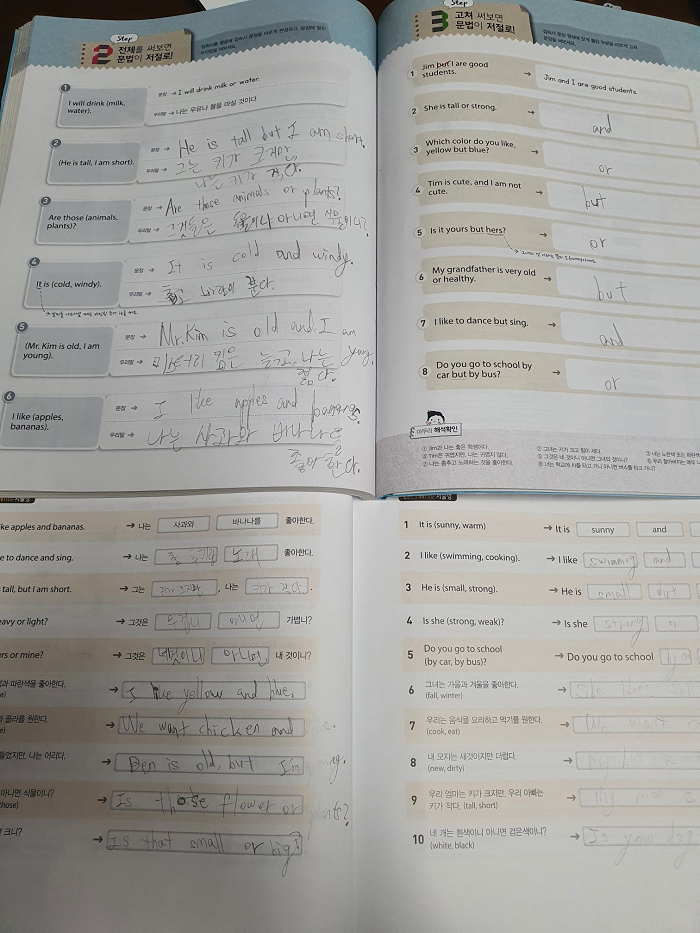 Step
2 전체를 써보면
문법이 저절로!
1
I will drink (milk, water).
문장 → I will drink milk or water.
우리말 → 나는 우유나 물을 마실 것이다
2
(He is tall, I am short).
문장 → He is tall but I am short.
우리말 → 그는 키가 크지만
나는 키가 작다.
3
Are those (animals, plants)?
문장 → Are those animals or plants?
우리말 → 그것들은 동물이니 아니면 식물이니?
4
It is (cold, windy).
문장 → It is cold and windy.
우리말 → 춥고 바람이 분다.
5
(Mr. Kim is old, I am young).
문장 → Mr. Kim is old and I am young.
우리말 → 미스터리 김은 늙고, 나는
젊다.
6
I like (apples, bananas).
문장 → I like apples and bananas.
우리말 → 나는 사과와 바나나를
좋아한다.
Step
3 고쳐 써보면
문법이 저절로!
1 Jim but I are good students. → Jim and I are good students.
2 She is tall or strong. → and
3 Which color do you like, yellow but blue? → or
4 Tim is cute, and I am not cute. → but
5 Is it yours but hers? → or
6 My grandfather is very old or healthy. → but
7 I like to dance but sing. → and
8 Do you go to school by car but by bus? → or
마무리 해석확인
① Jim과 나는 좋은 학생이다.
② 그녀는 키가 크고 힘이 세다.
③ 너는 노란색 또는 파란색
④ Tim은 귀엽지만, 나는 귀엽지 않다.
⑤ 그것은 네 것이니 아니면 그녀의 것이니?
⑦ 나는 춤추고 노래하는 것을 좋아한다.
⑧ 너는 학교에 차를 타고 가니 아니면 버스를 타고 가니?
ke apples and bananas. → 나는 사과와 바나나를 좋아한다.
e to dance and sing. → 나는 춤 추기와 노래 좋아한다.
tall, but I am short. → 그는 키가 크지만, 나는 키가 작다.
eavy or light? → 그것은 무겁니 아니면 가볍니?
urs or mine? → 그것은 네것이니 아니면 내 것이니?
과 파란색을 좋아한다. → I like yellow and blue.
과 콜라를 원한다. → We want chicken and
들었지만, 나는 어리다. → Ben is old, but I'm young.
아니면 식물이니? → Is those flower or plants?
those)
크니? → Is that small or big?
1 It is (sunny, warm) → It is sunny and
2 I like (swimming, cooking). → I like swimming and
3 He is (small, strong). → He is small but
4 Is she (strong, weak)? → Is she strong or
5 Do you go to school (by car, by bus)? → Do you go to school by
6 그녀는 가을과 겨울을 좋아한다.
(fall, winter) → She
7 우리는 음식을 요리하고 먹기를 원한다.
(cook, eat) → We want
8 내 모자는 새것이지만 더럽다.
(new, dirty) →
9 우리 엄마는 키가 크지만, 우리 아빠는
키가 작다. (tall, short) → My
10 네 개는 흰색이니 아니면 검은색이니?
(white, black) → Is your dog